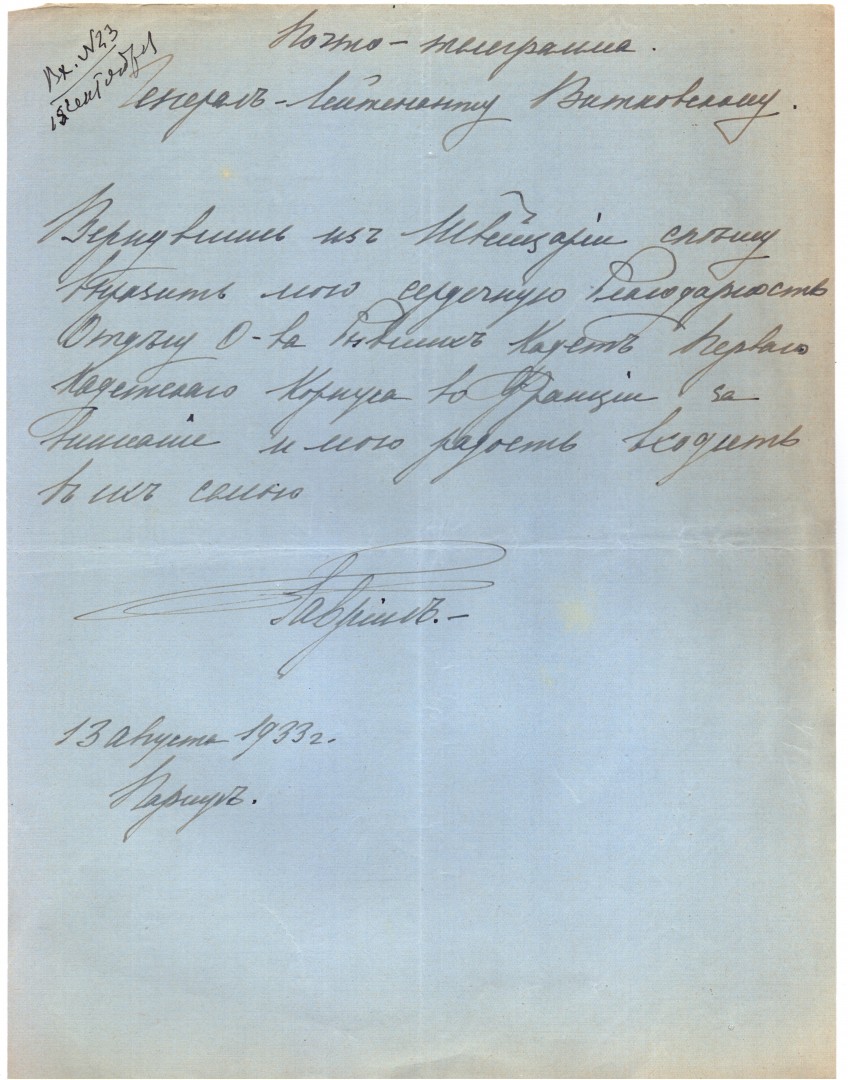 Вх. № 23
15 сентября
Почто-телеграмма.
Генералъ-Лейтенанту Витковскому.
Вернувшись изъ Швейцаріи спѣшу
выразить мою сердечную благодарность
Отдѣлу О-ва бывшихъ Кадетъ Перваго
Кадетскаго Корпуса во Франціи за
вниманіе и мою радость входить
въ ихъ семью
Гавріилъ.—
13 августа 1933 г.
Парижъ.